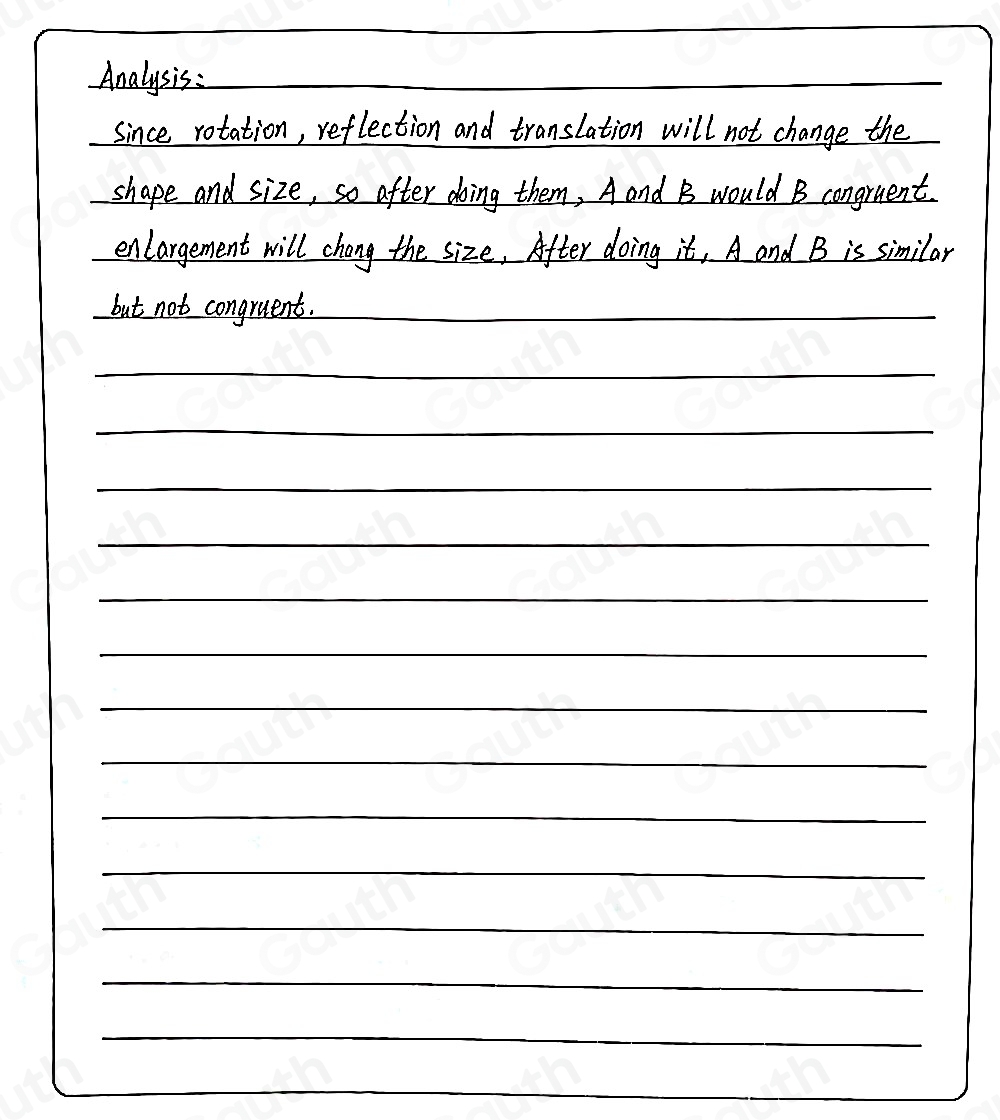 Analysis:
since rotation, reflection and translation will not change the
shape and size, so after doing them, A and B would B congruent.
enlargement will chang the size. After doing it, A and B is similar
but not congruent.